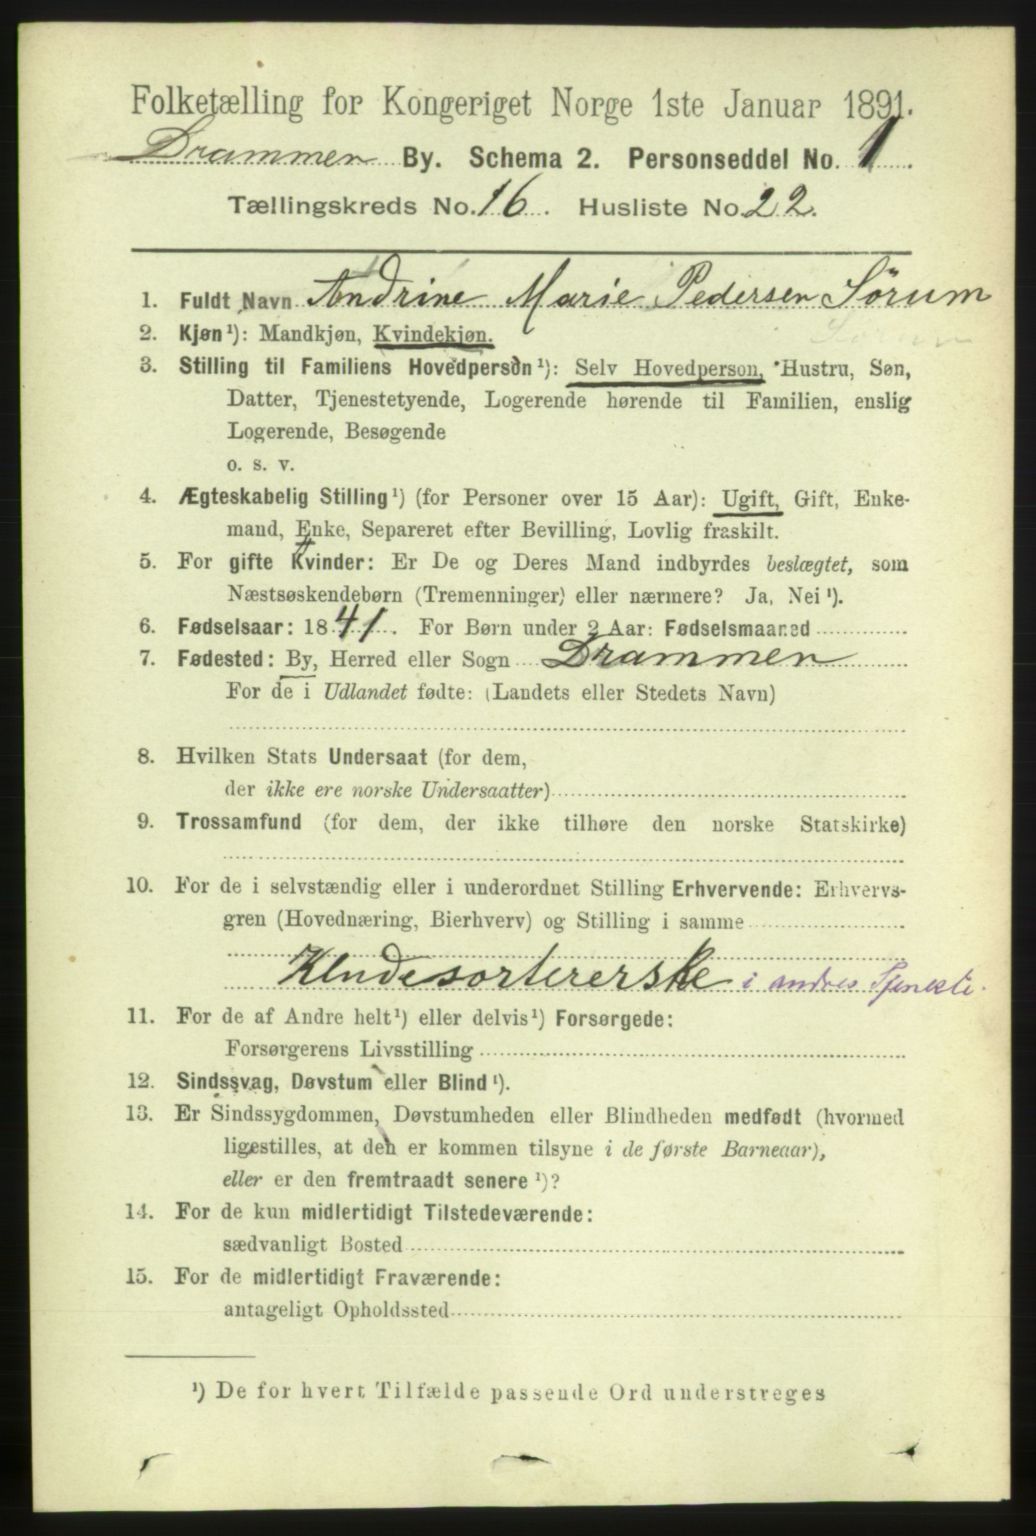 Folketælling for Kongeriget Norge 1ste Januar 1891.
Drammen By. Schema 2. Personseddel No. 1
Tællingskreds No. 16. Husliste No. 22.
1. Fuldt Navn Andrine Marie Pedersen Sørum
2. Kjøn¹): Mandkjøn, Kvindekjøn.
3. Stilling til Familiens Hovedperson¹): Selv Hovedperson, Hustru, Søn,
Datter, Tjenestetyende, Logerende hørende til Familien, enslig
Logerende, Besøgende
o. s. v.
4. Ægteskabelig Stilling¹) (for Personer over 15 Aar): Ugift, Gift, Enke-
mand, Enke, Separeret efter Bevilling, Lovlig fraskilt.
5. For gifte Kvinder: Er De og Deres Mand indbyrdes beslægtet, som
Næstsøskendebørn (Tremenninger) eller nærmere? Ja, Nei¹).
6. Fødselsaar: 1841. For Børn under 2 Aar: Fødselsmaaned
7. Fødested: By, Herred eller Sogn Drammen
For de i Udlandet fødte: (Landets eller Stedets Navn)
8. Hvilken Stats Undersaat (for dem,
der ikke ere norske Undersaatter)
9. Trossamfund (for dem, der ikke tilhøre den norske Statskirke)
10. For de i selvstændig eller i underordnet Stilling Erhvervende: Erhvervs-
gren (Hovednæring, Bierhverv) og Stilling i samme
Kludesortererske i andres Tjeneste.
11. For de af Andre helt¹) eller delvis¹) Forsørgede:
Forsørgerens Livsstilling
12. Sindssvag, Døvstum eller Blind¹).
13. Er Sindssygdommen, Døvstumheden eller Blindheden medfødt (hvormed
ligestilles, at den er kommen tilsyne i de første Barneaar),
eller er den fremtraadt senere¹)?
14. For de kun midlertidigt Tilstedeværende:
sædvanligt Bosted
15. For de midlertidigt Fraværende:
antageligt Opholdssted
¹) De for hvert Tilfælde passende Ord understreges